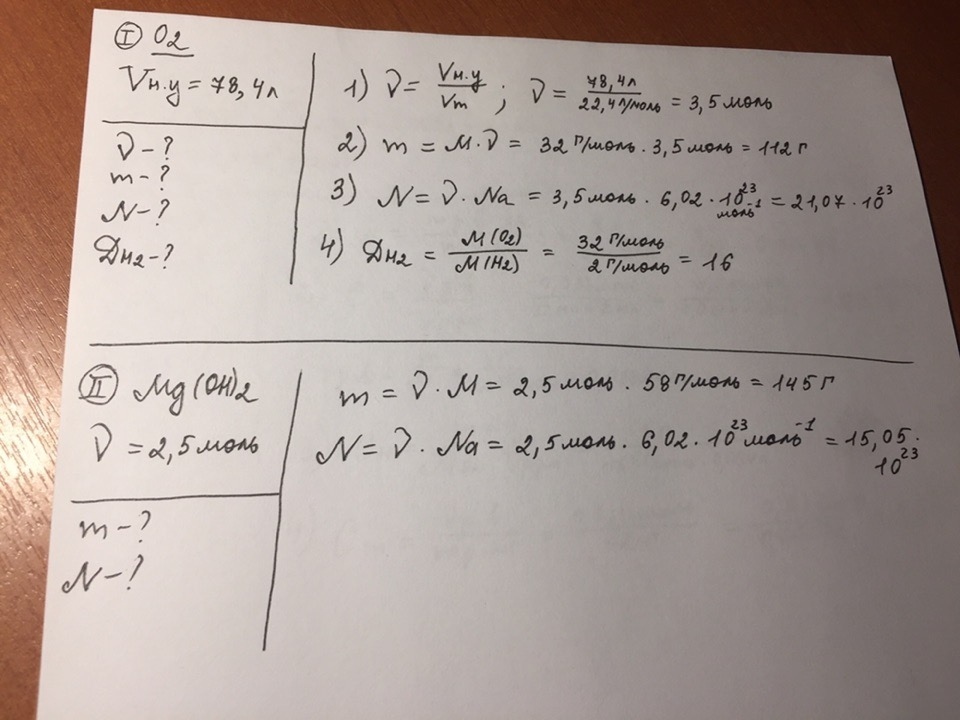 I O2
Vн.у = 78,4л
ν - ?
m - ?
N - ?
Дн2 - ?
1) ν = Vн.у / Vm ; ν = 78,4л / 22,4 л/моль = 3,5 моль
2) m = M · ν = 32 г/моль · 3,5 моль = 112 г
3) N = ν · Na = 3,5 моль · 6,02 · 10²³ моль⁻¹ = 21,07 · 10²³
4) Дн2 = M(O2) / M(H2) = 32 г/моль / 2 г/моль = 16
II Mg(OH)2
ν = 2,5 моль
m - ?
N - ?
m = ν · M = 2,5 моль · 58 г/моль = 145 г
N = ν · Na = 2,5 моль · 6,02 · 10²³ моль⁻¹ = 15,05 ·
10²³